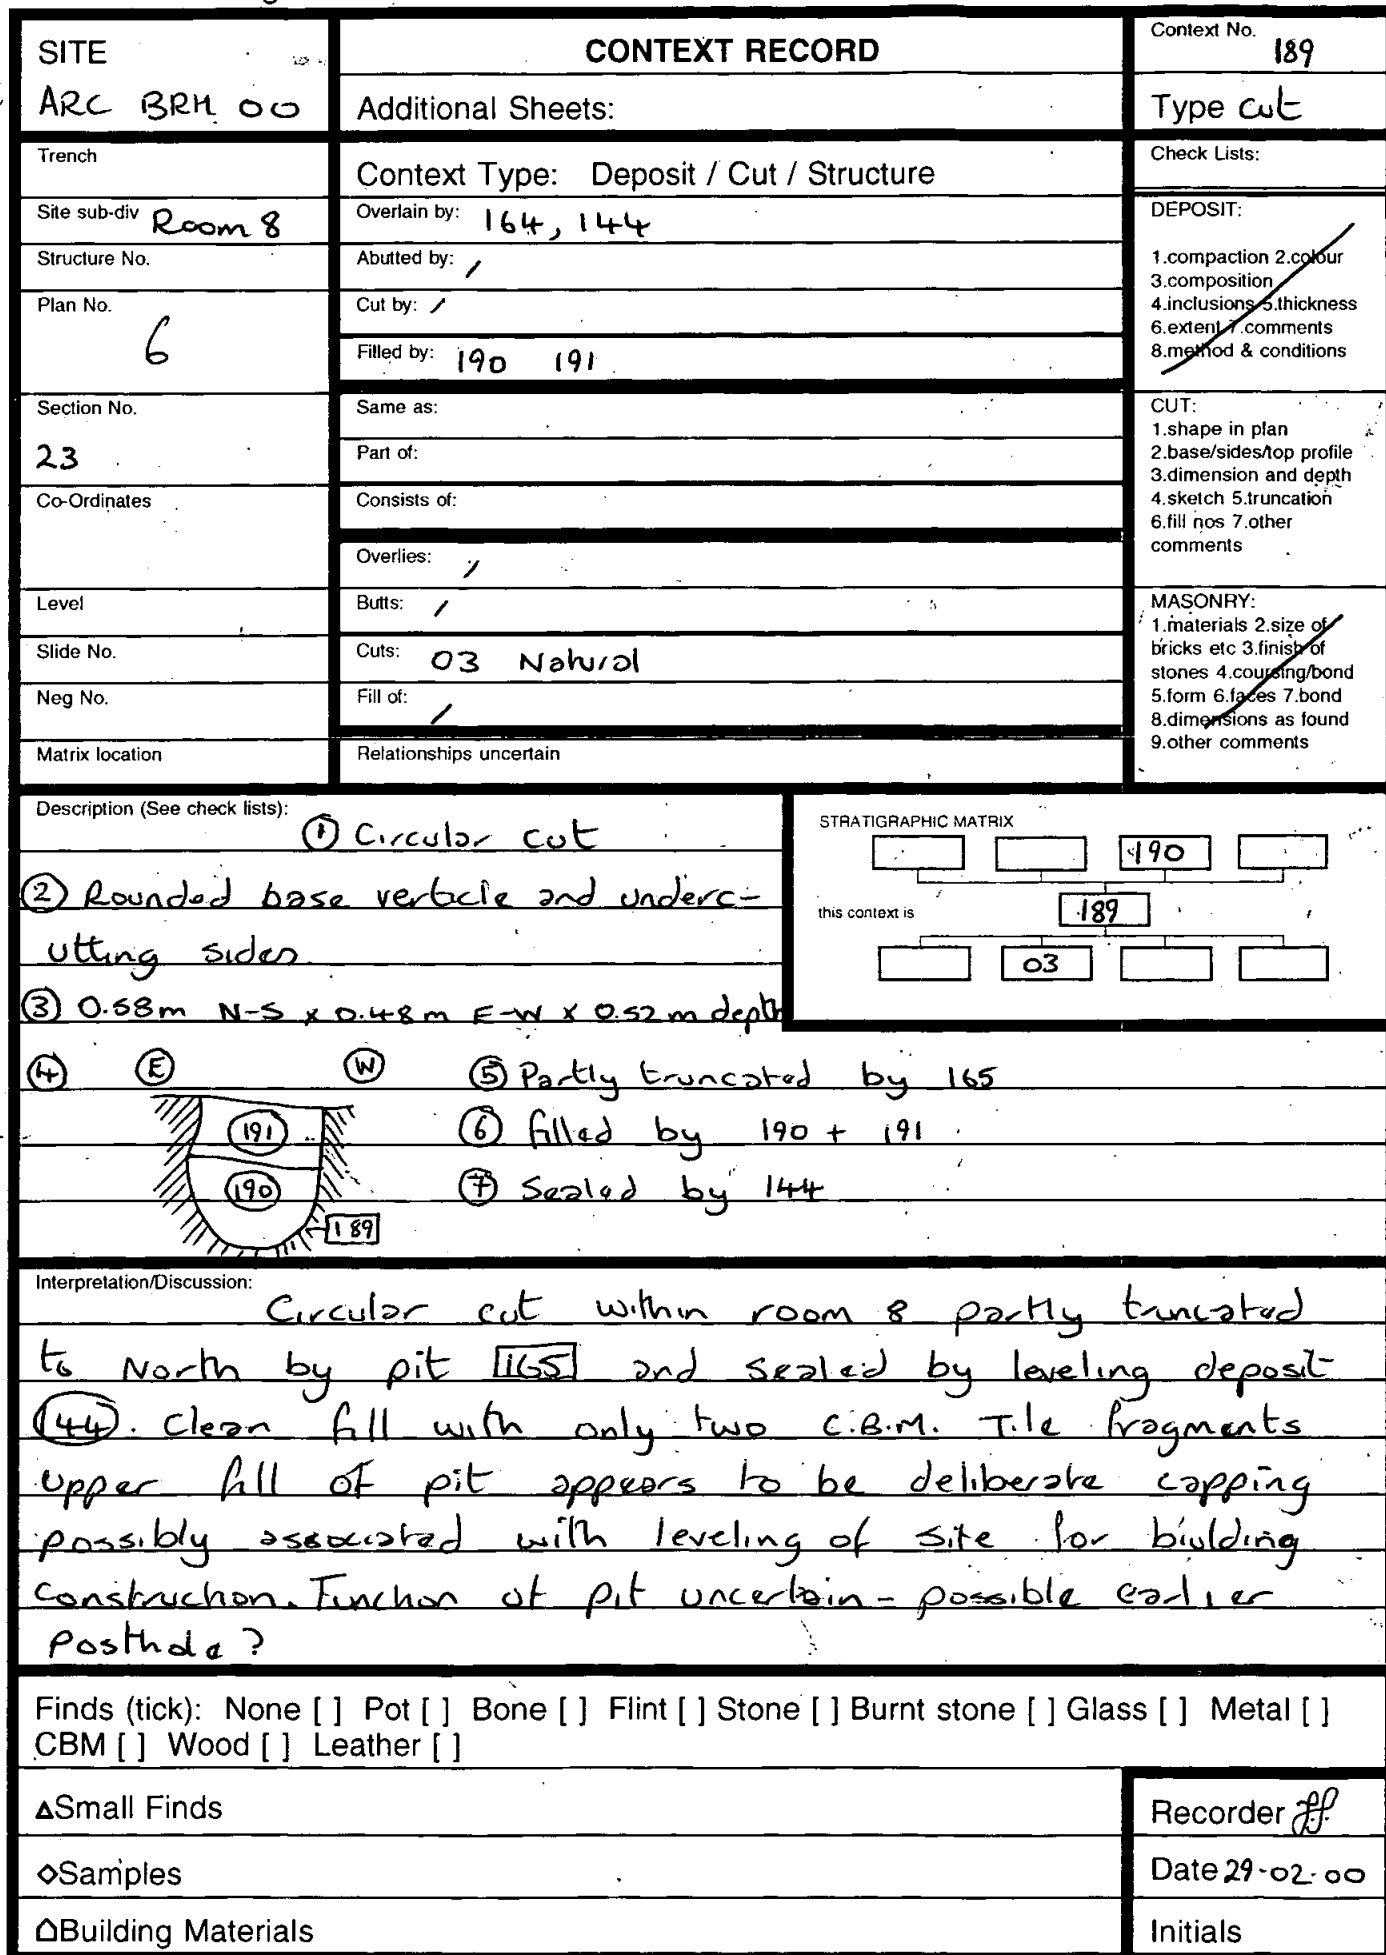 SITE
ARC BRH 00
CONTEXT RECORD
Additional Sheets:
Context No.
189
Type cut
Trench
Site sub-div Room 8
Structure No.
Plan No.
6
Section No.
23
Co-Ordinates
Level
Slide No.
Neg No.
Matrix location
Context Type: Deposit / Cut / Structure
Overlain by: 164, 144
Abutted by: /
Cut by: /
Filled by: 190 191
Same as:
Part of:
Consists of:
Overlies: /
Butts: /
Cuts: 03 Natural
Fill of: /
Relationships uncertain
Check Lists:
DEPOSIT:
1.compaction 2.colour
3.composition
4.inclusions 5.thickness
6.extent 7.comments
8.method & conditions
CUT:
1.shape in plan
2.base/sides/top profile
3.dimension and depth
4.sketch 5.truncation
6.fill nos 7.other
comments
MASONRY:
1.materials 2.size of
bricks etc 3.finish of
stones 4.coursing/bond
5.form 6.faces 7.bond
8.dimensions as found
9.other comments
Description (See check lists):
① Circular cut
② Rounded base verticle and underc-
utting sides
③ 0.58m N-S x 0.48m E-W x 0.52m depth
STRATIGRAPHIC MATRIX
190
this context is 189
03
④ E W
191
190
189
⑤ Partly truncated by 165
⑥ filled by 190 + 191
⑦ Sealed by 144
Interpretation/Discussion:
Circular cut within room 8 partly truncated
to North by pit 165 and sealed by leveling deposit
144. Clean fill with only two C.B.M. Tile fragments
upper fill of pit appears to be deliberate capping
possibly associated with leveling of site for biulding
construction. Function of pit uncertain - possible earlier
Posthole?
Finds (tick): None [ ] Pot [ ] Bone [ ] Flint [ ] Stone [ ] Burnt stone [ ] Glass [ ] Metal [ ]
CBM [ ] Wood [ ] Leather [ ]
△Small Finds
◇Samples
Building Materials
Recorder
Date 29-02-00
Initials